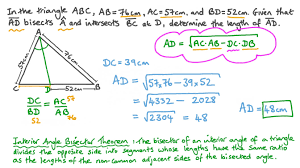 In the triangle ABC, AB=76cm, AC=57cm, and BD=52cm. Given that
AD bisects A and intersects BC at D, determine the length of AD.
A
57cm
76cm
C
D
B
52cm
AD = √AC·AB-DC·DB
DC = 39cm
DC/DB = AC/AB
57
52
76
AD = √57·76-39·52
= √4332 - 2028
= √2304 = 48
AD = 48cm
Interior Angle Bisector Theorem: The bisector of an interior angle of a triangle
divides the opposite side into segments whose lengths have the same ratio
as the lengths of the non-common adjacent sides of the bisected angle.